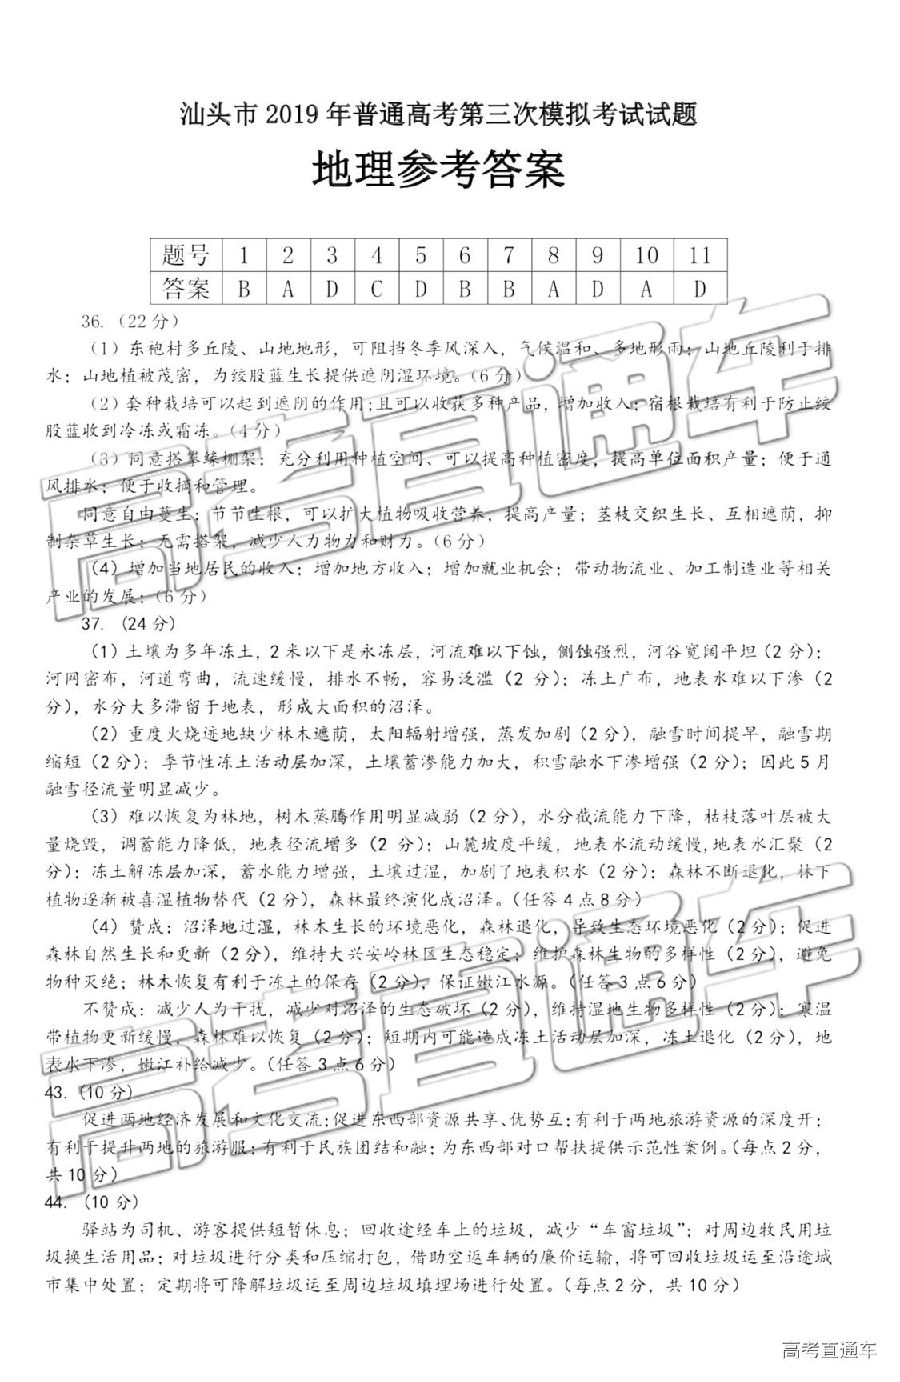 汕头市2019年普通高考第三次模拟考试试题
地理参考答案
题号 1 2 3 4 5 6 7 8 9 10 11
答案 B A D C D B B A D A D
36.（22分）
（1）东袍村多丘陵、山地地形，可阻挡冬季风深入，气候温和、多地形雨；山地丘陵利于排
水；山地植被茂密，为绞股蓝生长提供遮阴湿环境。（6分）
（2）套种栽培可以起到遮阴的作用；且可以收获多种产品，增加收入；宿根栽培有利于防止绞
股蓝收到冷冻或霜冻。（4分）
（3）同意搭攀缘棚架：充分利用种植空间、可以提高种植密度，提高单位面积产量；便于通
风排水；便于收摘和管理。
同意自由蔓生：节节生根，可以扩大植物吸收营养，提高产量；茎枝交织生长、互相遮荫，抑
制杂草生长；无需搭架，减少人力物力和财力。（6分）
（4）增加当地居民的收入；增加地方收入；增加就业机会；带动物流业、加工制造业等相关
产业的发展；（6分）
37.（24分）
（1）土壤为多年冻土，2米以下是永冻层，河流难以下蚀，侧蚀强烈，河谷宽阔平坦（2分）；
河网密布，河道弯曲，流速缓慢，排水不畅，容易泛滥（2分）；冻土广布，地表水难以下渗（2
分），水分大多滞留于地表，形成大面积的沼泽。
（2）重度火烧迹地缺少林木遮荫，太阳辐射增强，蒸发加剧（2分），融雪时间提早，融雪期
缩短（2分）；季节性冻土活动层加深，土壤蓄渗能力加大，积雪融水下渗增强（2分）；因此5月
融雪径流量明显减少。
（3）难以恢复为林地，树木蒸腾作用明显减弱（2分），水分截流能力下降，枯枝落叶层被大
量烧毁，调蓄能力降低，地表径流增多（2分）；山麓坡度平缓，地表水流动缓慢，地表水汇聚（2
分）；冻土解冻层加深，蓄水能力增强，土壤过湿，加剧了地表积水（2分）；森林不断退化，林下
植物逐渐被喜湿植物替代（2分），森林最终演化成沼泽。（任答4点8分）
（4）赞成：沼泽地过湿，林木生长的环境恶化，森林退化，导致生态环境恶化（2分）；促进
森林自然生长和更新（2分），维持大兴安岭林区生态稳定；维护森林生物的多样性（2分），避免
物种灭绝；林木恢复有利于冻土的保存（2分），保证嫩江水源。（任答3点6分）
不赞成：减少人为干扰，减少对沼泽的生态破坏（2分），维持湿地生物多样性（2分）；寒温
带植物更新缓慢，森林难以恢复（2分）；短期内可能造成冻土活动层加深，冻土退化（2分），地
表水下渗，嫩江补给减少。（任答3点6分）
43.（10分）
促进两地经济发展和文化交流；促进东西部资源共享、优势互；有利于两地旅游资源的深度开；
有利于提升两地的旅游服；有利于民族团结和融；为东西部对口帮扶提供示范性案例。（每点2分，
共10分）
44.（10分）
驿站为司机、游客提供短暂休息；回收途经车上的垃圾，减少“车窗垃圾”；对周边牧民用垃
圾换生活用品；对垃圾进行分类和压缩打包，借助空返车辆的廉价运输，将可回收垃圾运至沿途城
市集中处置；定期将可降解垃圾运至周边垃圾填埋场进行处置。（每点2分，共10分）
高考直通车
高考直通车
高考直通车